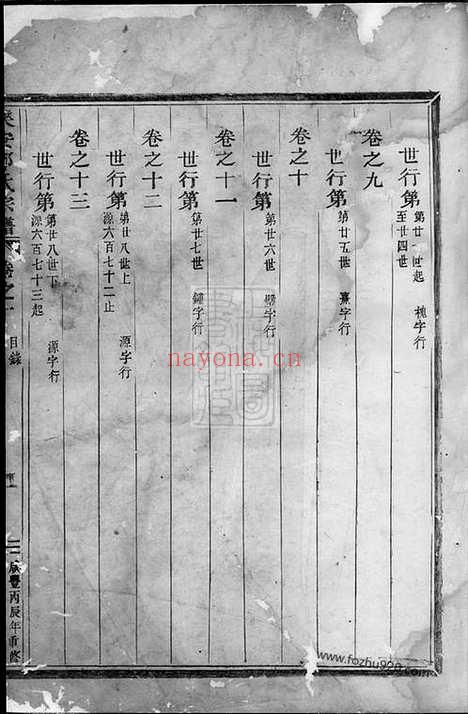 世行第 第廿一世起 槐字行
至廿四世
卷之九
世行第 第廿五世 熹字行
卷之十
世行第 第廿六世 字行
卷之十一
世行第 第廿七世 鐘字行
卷之十二
世行第 第廿八世上 源字行
源六百七十二止
卷之十三
世行第 第廿八世下 源字行
源六百七十三起
氏宗譜 卷之一 目錄
咸豐丙辰年重修
nayona.cn
www.fozhu920.com